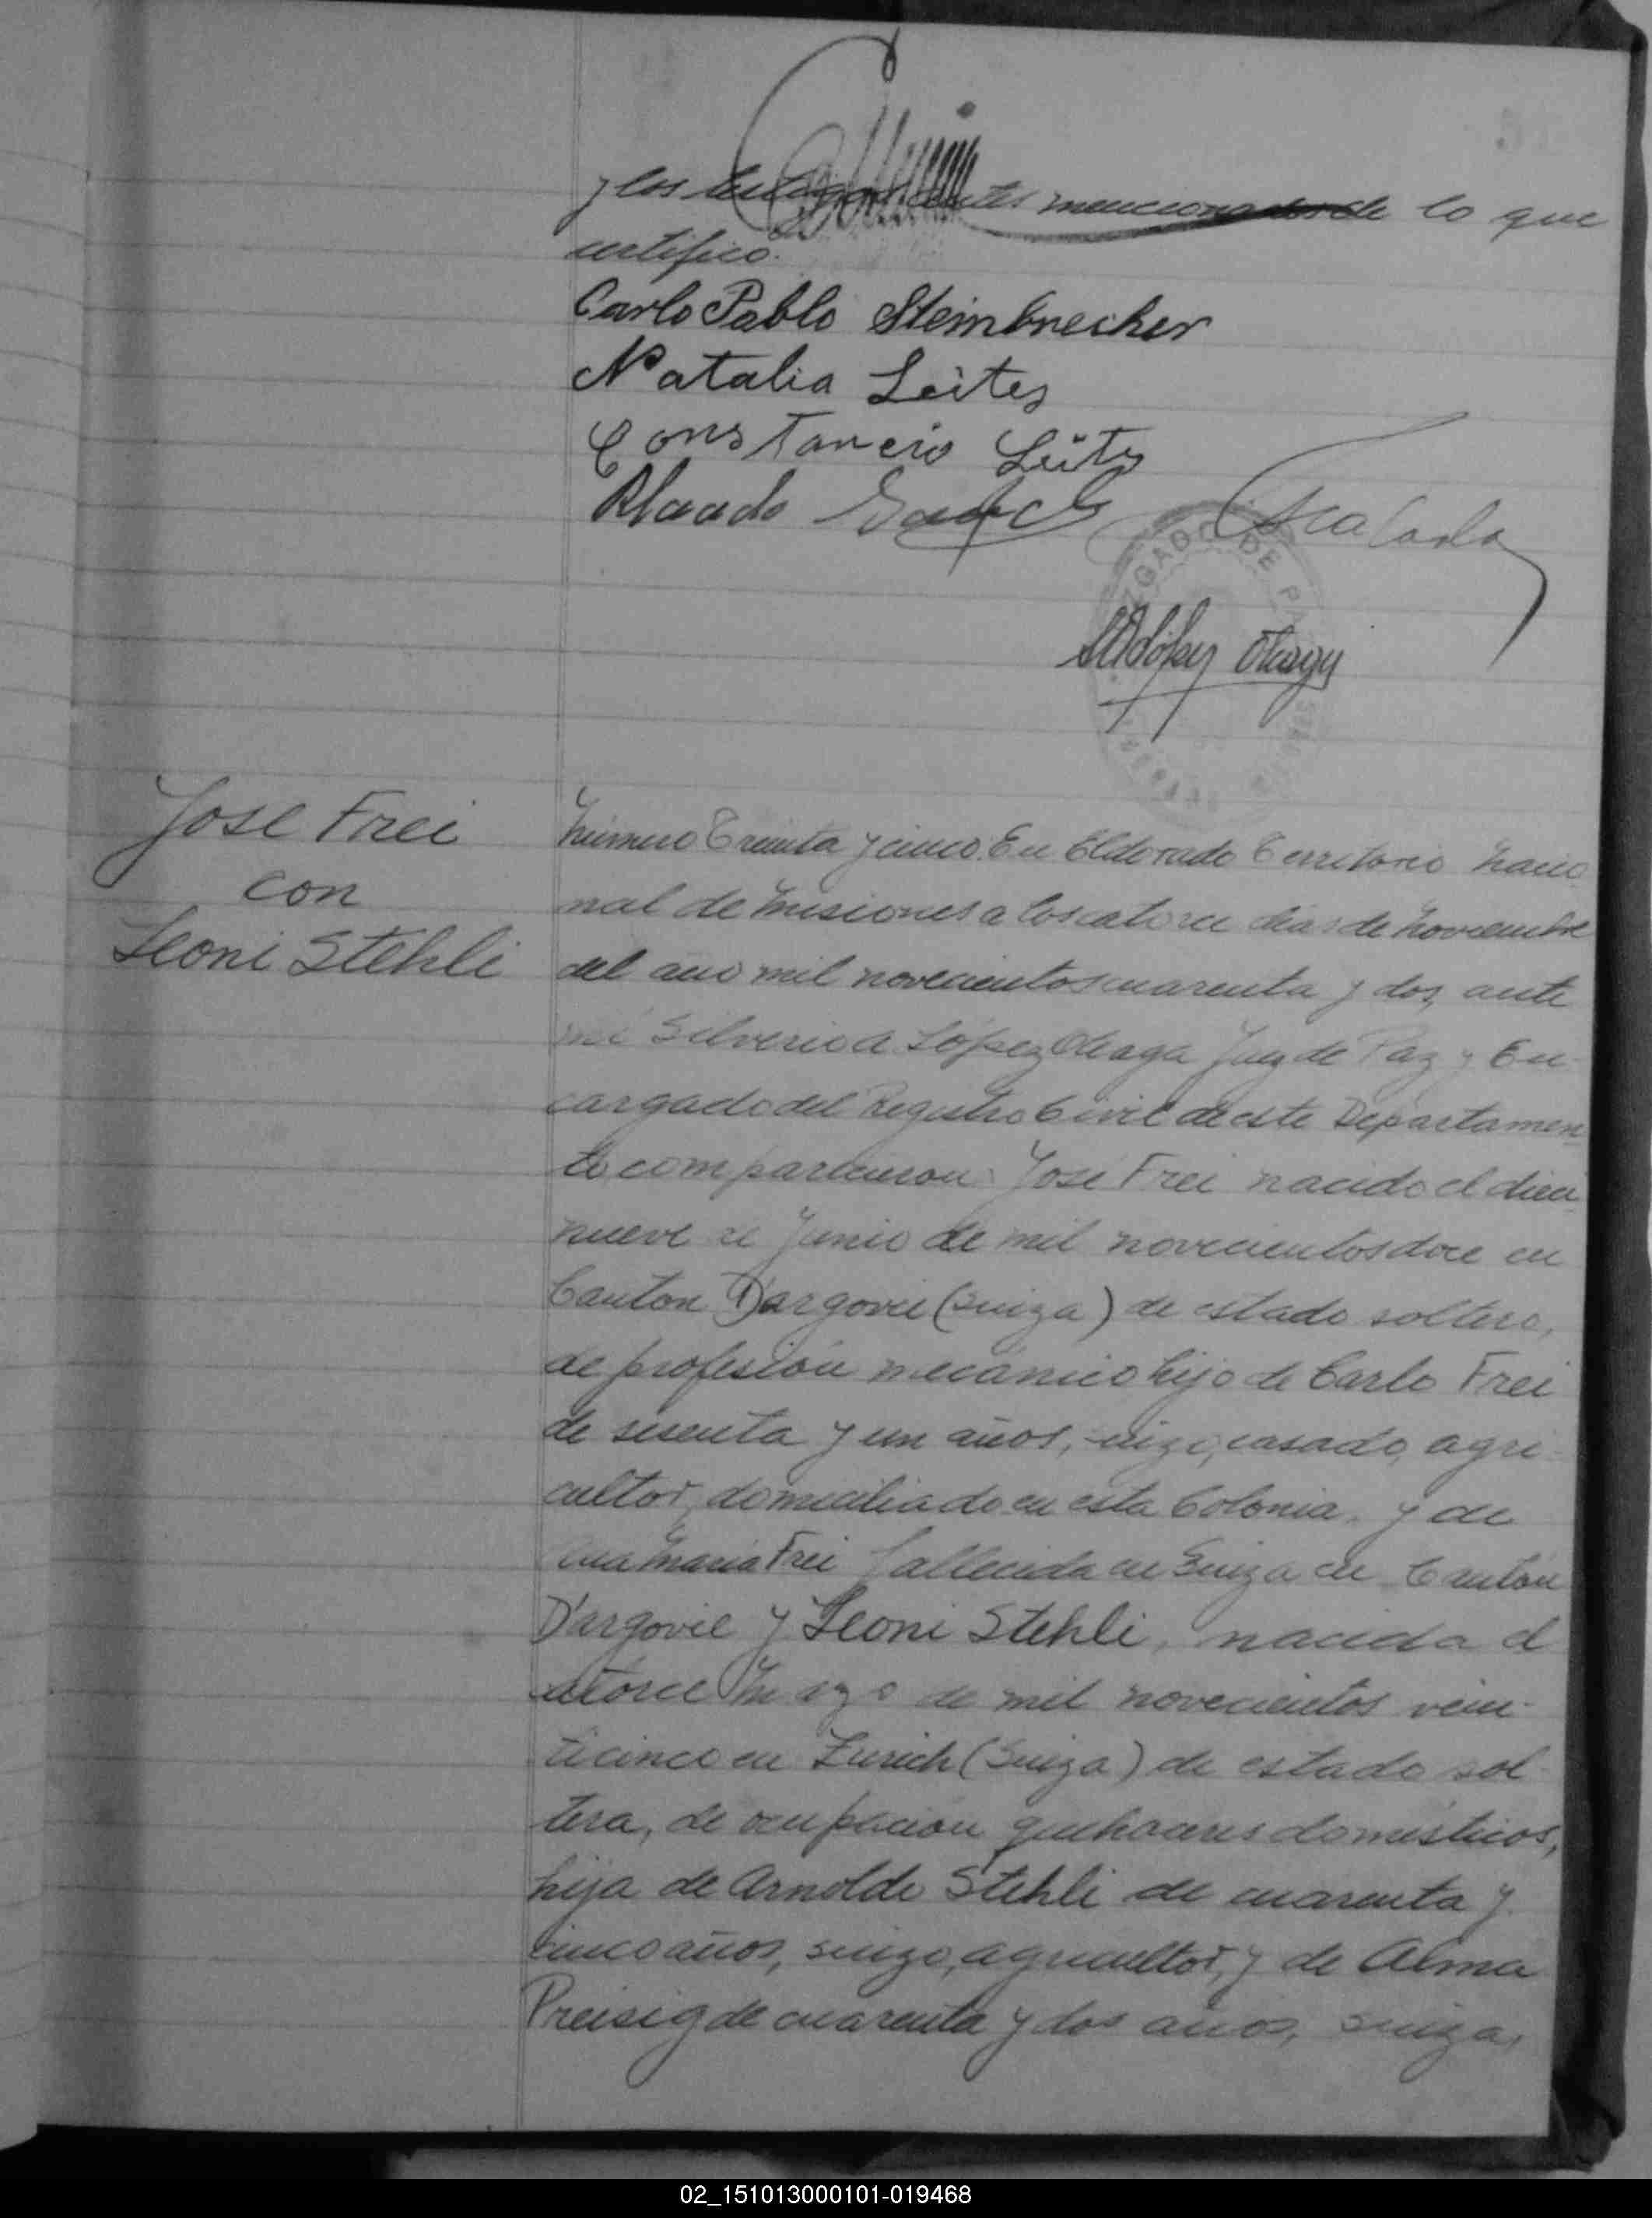 y los testigos antes mencionados de lo que
certifico.
Carlo Pablo Steinbrecher
Natalia Leites
Constancio Leites
JUZGADO DE PAZ
SALópez Oleaga
Jose Frei
con
Leoni Stehli
Número Treinta y cinco. En Eldorado Territorio Nacio
nal de Misiones a los catorce dias de Noviembre
del año mil novecientos cuarenta y dos, ante
mi Silverio A. López Oleaga Juez de Paz y En-
cargado del Registro Civil de este Departamen
to comparecieron: José Frei nacido el dieci
nueve de Junio de mil novecientos doce en
Canton D'argovie (Suiza) de estado soltero,
de profesión mecánico hijo de Carlo Frei
de sesenta y un años, suizo, casado, agri-
cultor, domiciliado en esta Colonia, y de
Ana Maria Frei fallecida en Suiza en Cantón
D'argovie y Leoni Stehli, nacida el
catorce Marzo de mil novecientos vein-
ticinco en Zurich (Suiza) de estado sol-
tera, de ocupación quehaceres domésticos,
hija de Arnoldo Stehli de cuarenta y
cinco años, suizo, agricultor, y de Alma
Preisig de cuarenta y dos años, suiza,
02_151013000101-019468